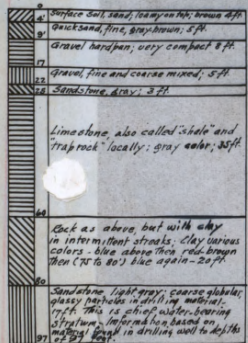 0
Surface soil, sand; loamy on top; brown 4ft.
4'
Quicksand, fine, gray-brown; 5 ft.
9'
Gravel hardpan; very compact 8 ft.
17
Gravel, fine and coarse mixed; 5 ft.
22
Sandstone, gray; 3 ft.
25
Limestone, also called "shale" and
"trap rock" locally; gray color; 35ft.
60
Rock as above, but with clay
in intermittent streaks; Clay various
colors - blue above then red-brown
then (75 to 80') blue again - 20 ft.
80
Sandstone, light gray; coarse globular,
glassy particles in drilling material.-
17ft. This is chief water-bearing
stratum - Information based on
material found in drilling well to depths
of 97 feet.
97